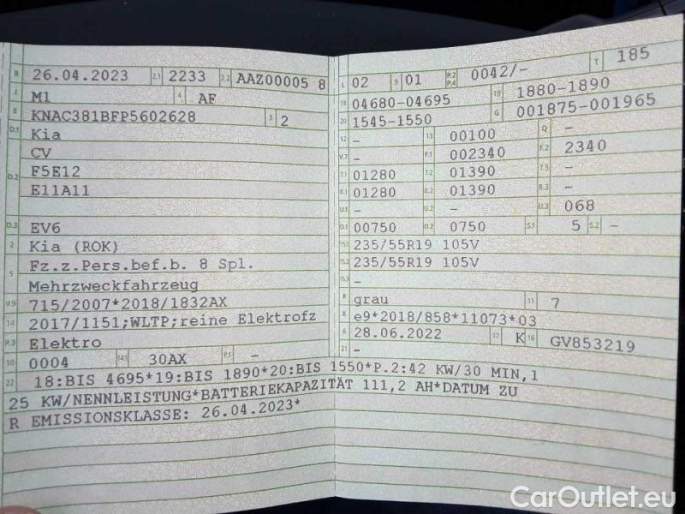 B 26.04.2023 2.1 2233 2.2 AAZ00005 8
J M1 4 AF
E KNAC381BFP5602628 3 2
D.1 Kia
D.2 CV
F5E12
E11A11
D.3 EV6
2 Kia (ROK)
5 Fz.z.Pers.bef.b. 8 Spl.
Mehrzweckfahrzeug
V.9 715/2007*2018/1832AX
14 2017/1151;WLTP;reine Elektrofz
P.3 Elektro
10 0004 14.1 30AX P.1 -
L 02 9 01 P.2 P.4 0042/- T 185
18 04680-04695 19 1880-1890
20 1545-1550 G 001875-001965
12 - 13 00100 Q -
V.7 - F.1 002340 F.2 2340
7.1 01280 7.2 01390 7.3 -
8.1 01280 8.2 01390 8.3 -
U.1 - U.2 - U.3 068
O.1 00750 O.2 0750 S.1 5 S.2 -
15.1 235/55R19 105V
15.2 235/55R19 105V
15.3 -
R grau 11 7
K e9*2018/858*11073*03
6 28.06.2022 17 K 16 GV853219
21 -
22 18:BIS 4695*19:BIS 1890*20:BIS 1550*P.2:42 KW/30 MIN,1
25 KW/NENNLEISTUNG*BATTERIEKAPAZITÄT 111,2 AH*DATUM ZU
R EMISSIONSKLASSE: 26.04.2023*
CarOutlet.eu